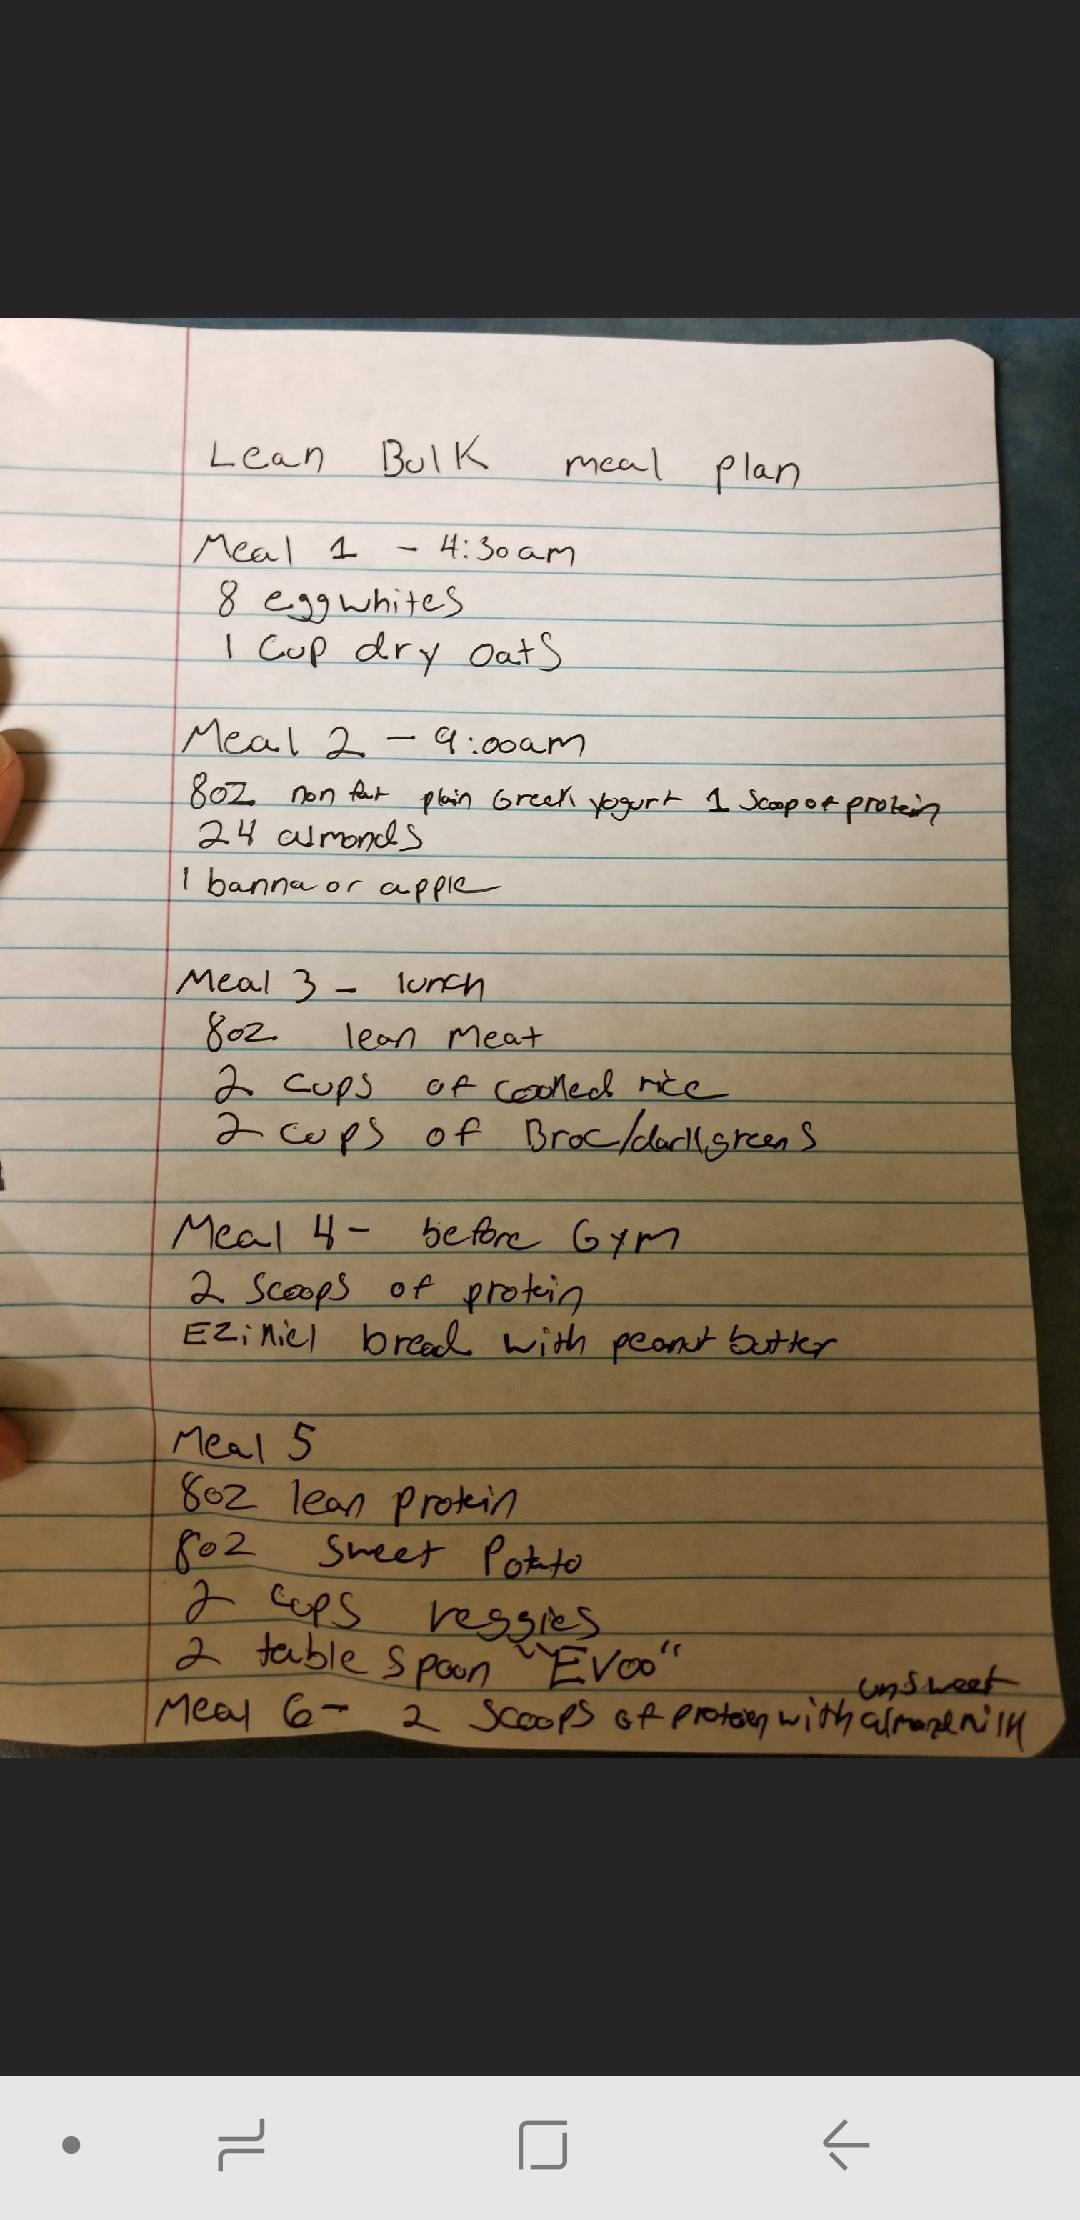 Lean Bulk meal plan
Meal 1 - 4:30am
8 eggwhites
1 Cup dry oats
Meal 2 - 9:00am
8oz non fat plain Greek yogurt 1 Scoop of protein
24 almonds
1 banna or apple
Meal 3 - lunch
8oz lean Meat
2 cups of cooked rice
2 cups of Broc/darkgreens
Meal 4 - before Gym
2 scoops of protein
Ezikiel bread with peanut butter
Meal 5
8oz lean protein
8oz sweet Potato
2 cups veggies
2 table spoon "EVOO"
unsweet
Meal 6 - 2 scoops of protein with almond milk